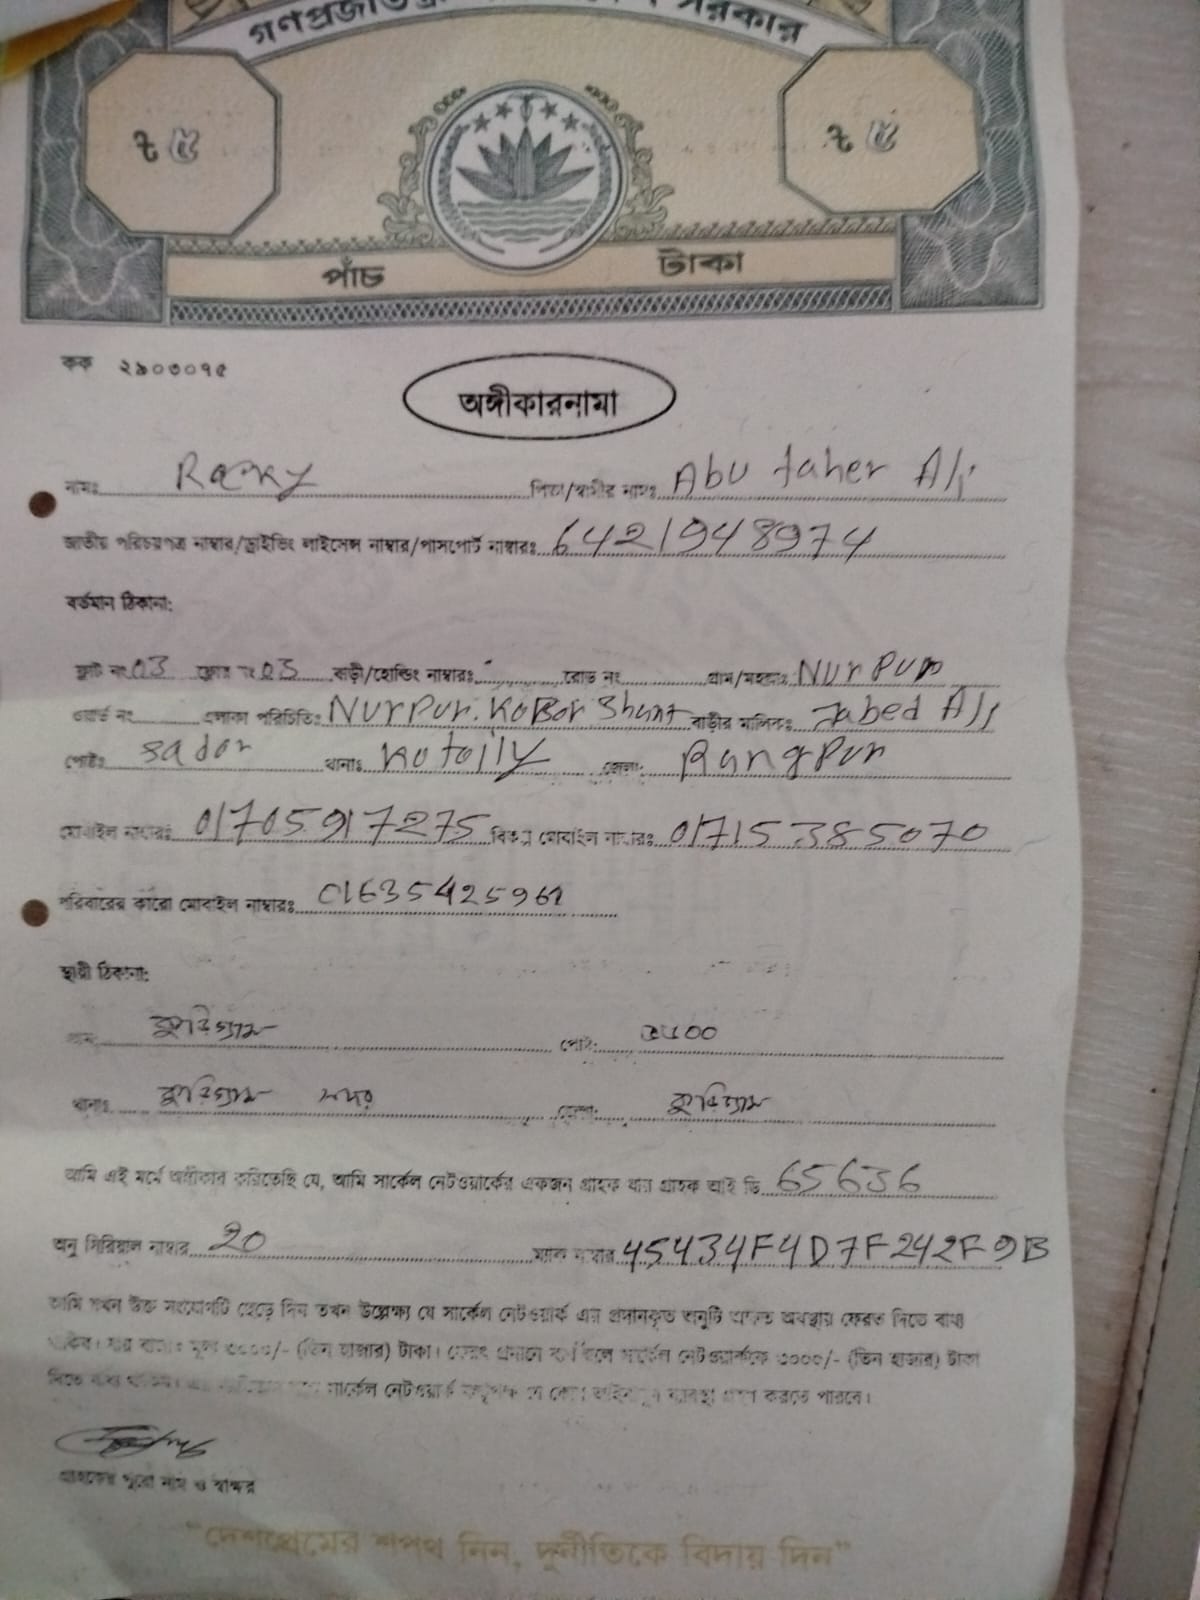 ৳ ৫ ৳ ৫
পাঁচ টাকা
কক ২৯০৩০৭৫
অঙ্গীকারনামা
নামঃ Ranky পিতা/স্বামীর নামঃ Abu taher Ali
জাতীয় পরিচয়পত্র নাম্বার/ড্রাইভিং লাইসেন্স নাম্বার/পাসপোর্ট নাম্বারঃ 6421948974
বর্তমান ঠিকানা:
ফ্লাট নং 03 ফ্লোর নং 03 বাড়ী/হোল্ডিং নাম্বারঃ রোড নং গ্রাম/মহল্লাঃ NurPur
ওয়ার্ড নং এলাকা পরিচিতিঃ NurPur. KoBor Shant বাড়ীর মালিকঃ Jabed Ali
পোষ্টঃ sador থানাঃ Kotolly জেলা: RangPur
মোবাইল নাম্বারঃ 01705917275 বিকল্প মোবাইল নাম্বারঃ 01715385070
পরিবারের কারো মোবাইল নাম্বারঃ
স্থায়ী ঠিকানা:
কুড়িগ্রাম পোষ্ট: ৫৬০০
থানাঃ কুড়িগ্রাম সদর জেলা: কুড়িগ্রাম
আমি এই মর্মে অঙ্গীকার করিতেছি যে, আমি সার্কেল নেটওয়ার্কের একজন গ্রাহক যার গ্রাহক আই ডি 65636
অনু সিরিয়াল নাম্বার 20 ম্যাক নাম্বার 45434F4D7F242F9B
আমি যখন উক্ত সংযোগটি ছেড়ে দিব তখন উল্লেখ্য যে সার্কেল নেটওয়ার্ক এর প্রদানকৃত অনুটি অক্ষত অবস্থায় ফেরত দিতে বাধ্য
থাকিব। যার বাজার মূল্য ৩০০০/- (তিন হাজার) টাকা। ফেরৎ প্রদানে ব্যর্থ হলে সার্কেল নেটওয়ার্ককে ৩০০০/- (তিন হাজার) টাকা
দিতে বাধ্য থাকিব। সার্কেল নেটওয়ার্ক কর্তৃপক্ষ যে কোন আইনানুগ ব্যবস্থা গ্রহণ করতে পারবে।
গ্রাহকের পুরো নাম ও স্বাক্ষর
"দেশপ্রেমের শপথ নিন, দুর্নীতিকে বিদায় দিন"